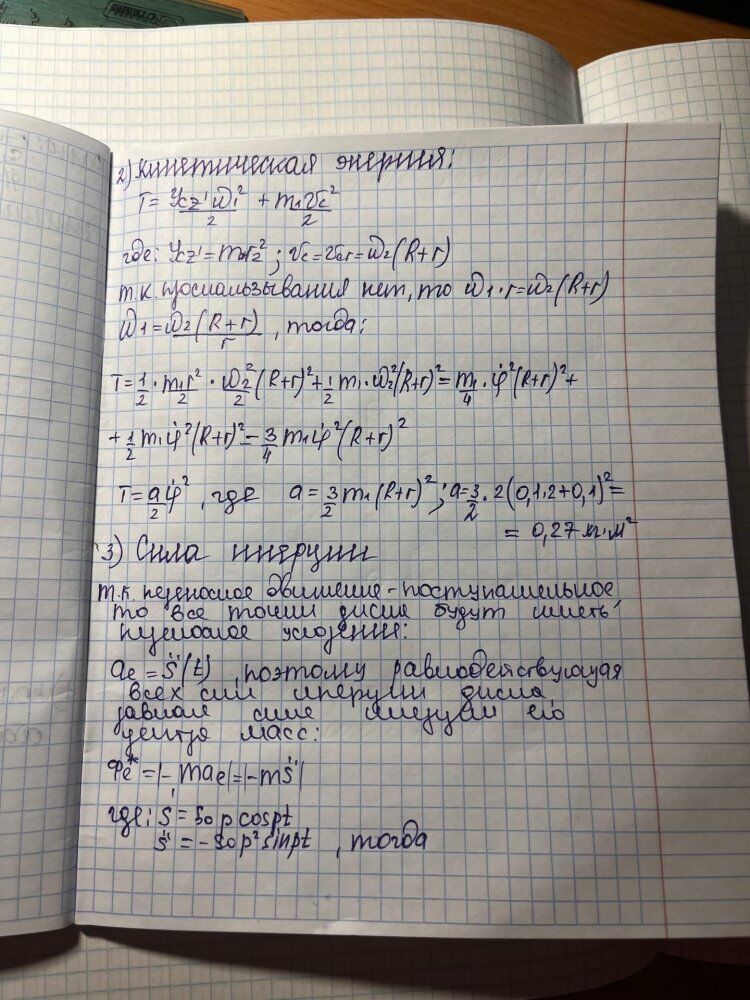 2) Кинетическая энергия:
T = Jcz'ω₁²/2 + m₁Vc²/2
где: Jcz' = m₁r²/2 ; Vc = Vcr = ω₂(R+r)
т.к. проскальзывания нет, то ω₁·r = ω₂(R+r)
ω₁ = ω₂(R+r)/r , тогда:
T = 1/2 · m₁r²/2 · ω₂²/r² (R+r)² + 1/2 m₁·ω₂²(R+r)² = m₁/4 · φ̇²(R+r)² +
+ 1/2 m₁φ̇²(R+r)² = 3/4 m₁φ̇²(R+r)²
T = a/2 φ̇² , где a = 3/2 m₁(R+r)² ; a = 3/2 · 2(0,1·2+0,1)² =
= 0,27 кг·м²
3) Сила инерции
т.к. переносное движение - поступательное,
то все точки диска будут иметь
переносное ускорения:
ae = s̈(t) , поэтому равнодействующая
всех сил инерции диска,
равная силе инерции его
центра масс:
Фe* = |-mae| = |-ms̈|
где: ṡ = s₀p cospt
s̈ = -s₀p² sinpt , тогда